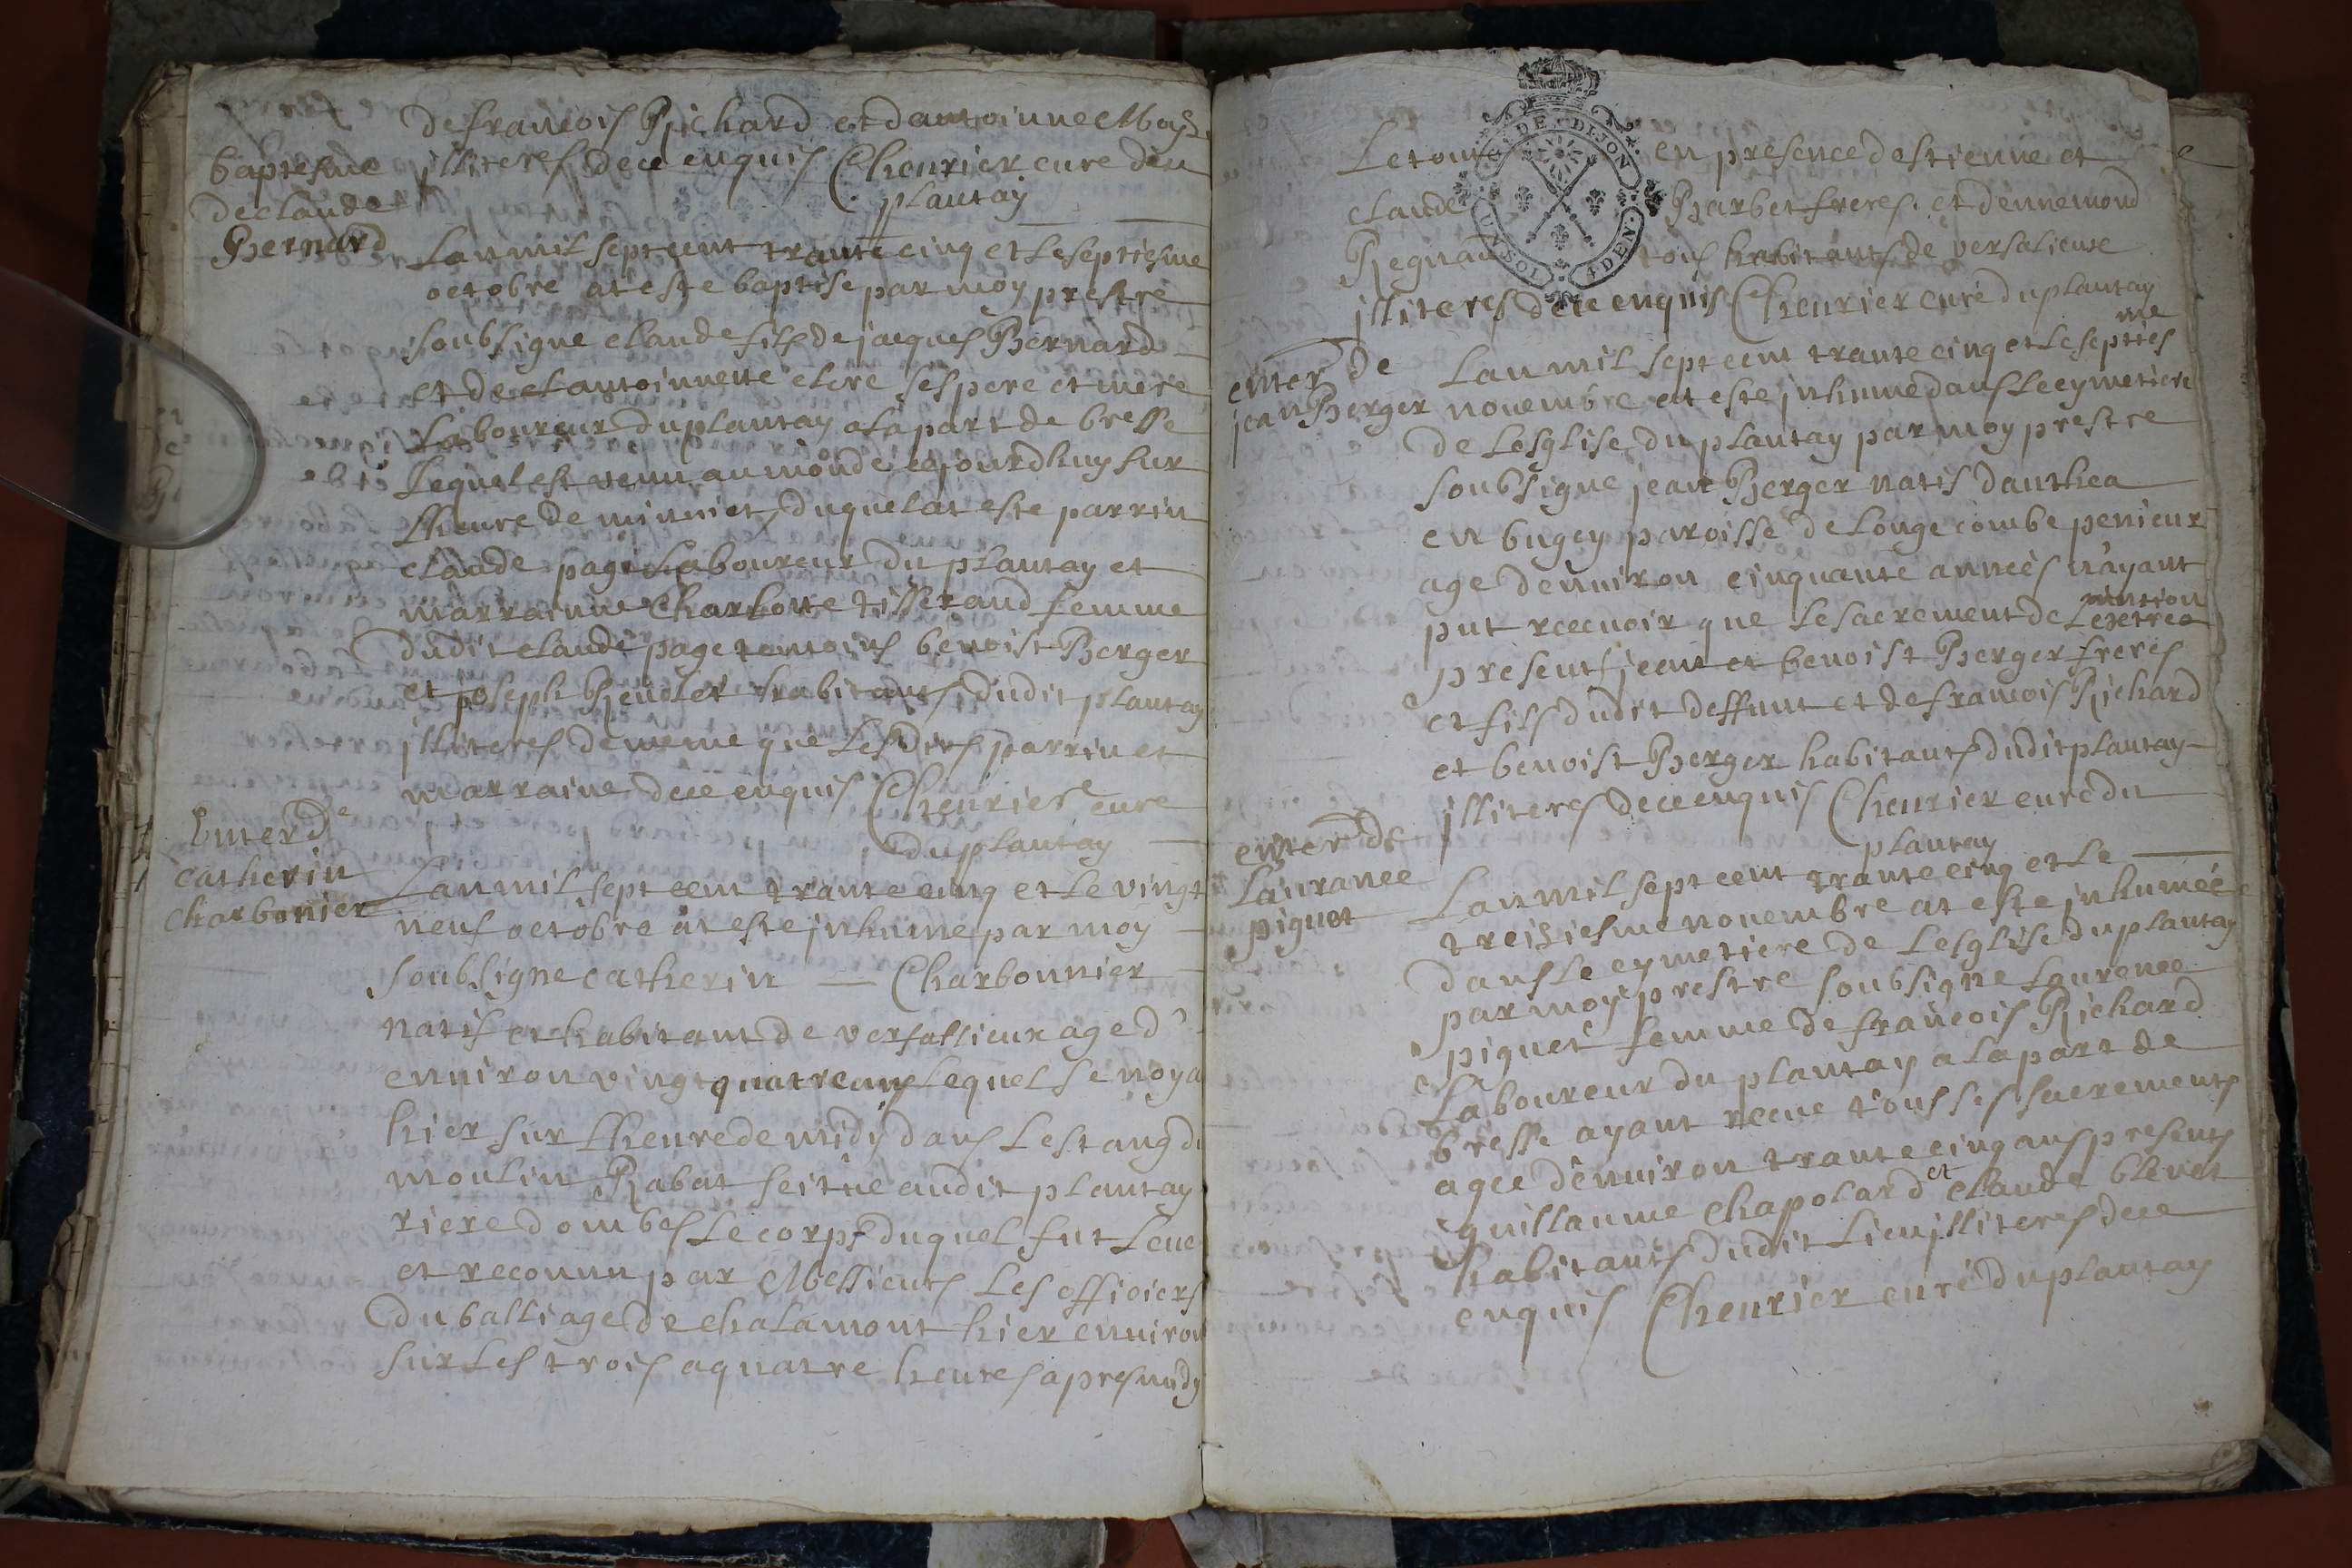 de francois Richard et dantoinne Moys
illiteres dece enquis Cheurier cure du
plantay
baptesme
de claude
Bernard
Lan mil sept cent trante cinq et le septiesme
octobre at este baptise par moy prestre
soubsigne claude fils de jacques Bernard
et de et antoinnette clere ses pere et mere
Laboureur du plantay a la part de bresse
Lequel est venu au monde ejourdhuy sur
Lheure de minuiet duquel at este parrin
claude page Laboureur du plantay et
marrainne Charlotte tisserand femme
dudit claude page temoins benoist Berger
et joseph habitants dudit plantay
illiteres de meme que Lesdits parrin et
marraine dece enquis Cheurier cure
du plantay
Enter de
catherin
charbonier
Lan mil sept cent trante cinq et le vingt
neuf octobre at este jnhume par moy
soubsigne catherin Charbonnier
natif et habitant de versallieux age d'
enuiron vingt quatre ans Lequel se noya
hier sur Lheure de midy dans Lestang du
moulin Rabat scitue audit plantay
riere dombes Le corps duquel fut Leue
et reconnu par Messieurs Les officiers
du balliage de chalamont hier enuiron
sur Les trois a quatre heures apres midy
Le tout en presence destienne et
claude Barbet freres et dennemond
Regnau tous habitants de versalieux
illiteres dece enquis Cheurier curé du plantay
GEN. DE DIJON
UN SOL 4 DEN.
enter de
jean Berger
Lan mil sept cent trante cinq et le septies
me
nouembre at este jnhumé dans Le cymetiere
de Lesglise du plantay par moy prestre
soubsigne jean Berger natif danthea
en bugey paroisse de Longecombe penieur
age denuiron cinquante années nayant
put receuoir que Le sacrement de Lextrea
mution
present jean et benoist Berger freres
et fils dudit deffunt et de francois Richard
et benoist Berger habitants dudit plantay
illiteres dece enquis Cheurier curé du
plantay
enter de
Laurance
piquet
Lan mil sept cent trante cinq et Le
treisiesme nouembre at este jnhumée
dans Le cymetiere de Lesglise du plantay
par moy prestre soubsigne Laurence
piquet femme de francois Richard
Laboureur du plantay a la part de
bresse ayant receue tous ses sacrements
agee denuiron trante cinq ans presents
guillaume chapolard et claude bleuet
habitants dudit Lieu illiteres dece
enquis Cheurier curé du plantay